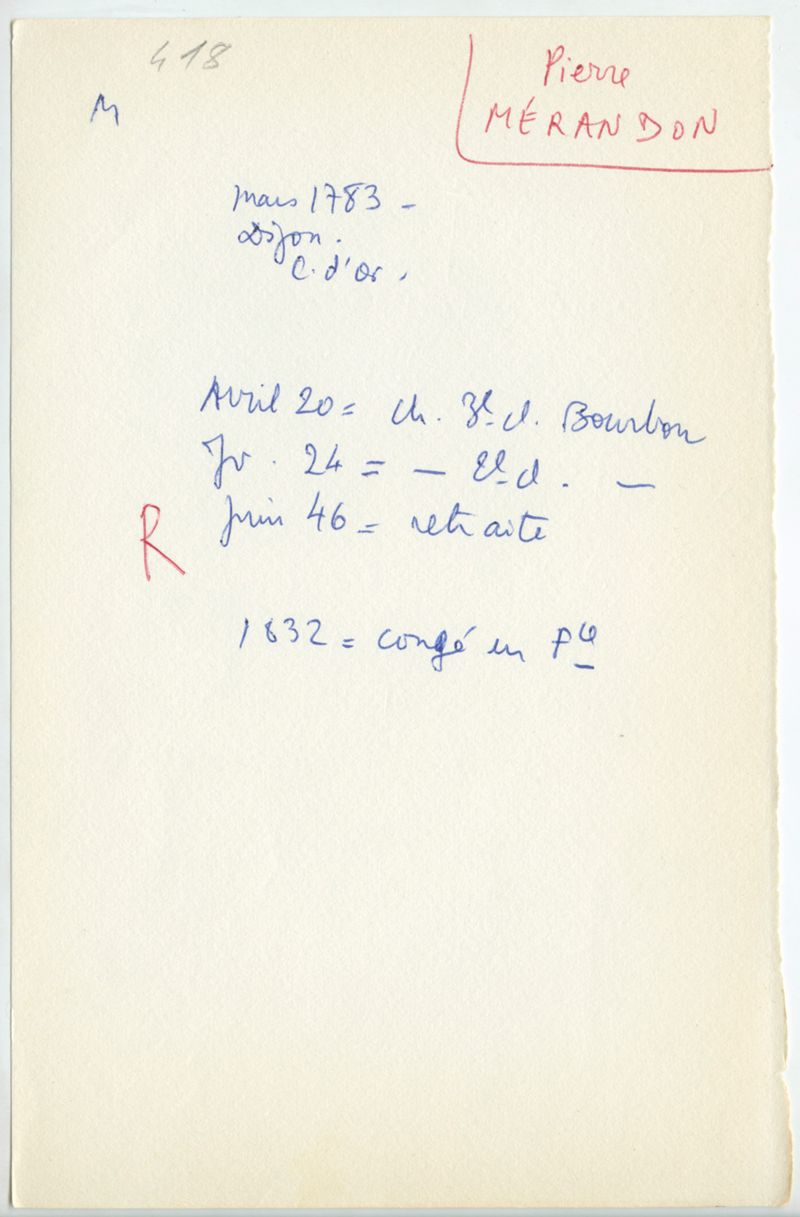 418
M
Pierre
MÉRANDON
mars 1783 -
Dijon.
C. d'or.
Avril 20 = ch. 3e cl. Bourbon
Jv. 24 = — 2e cl. —
R
Juin 46 = retraite
1832 = congé en Fce